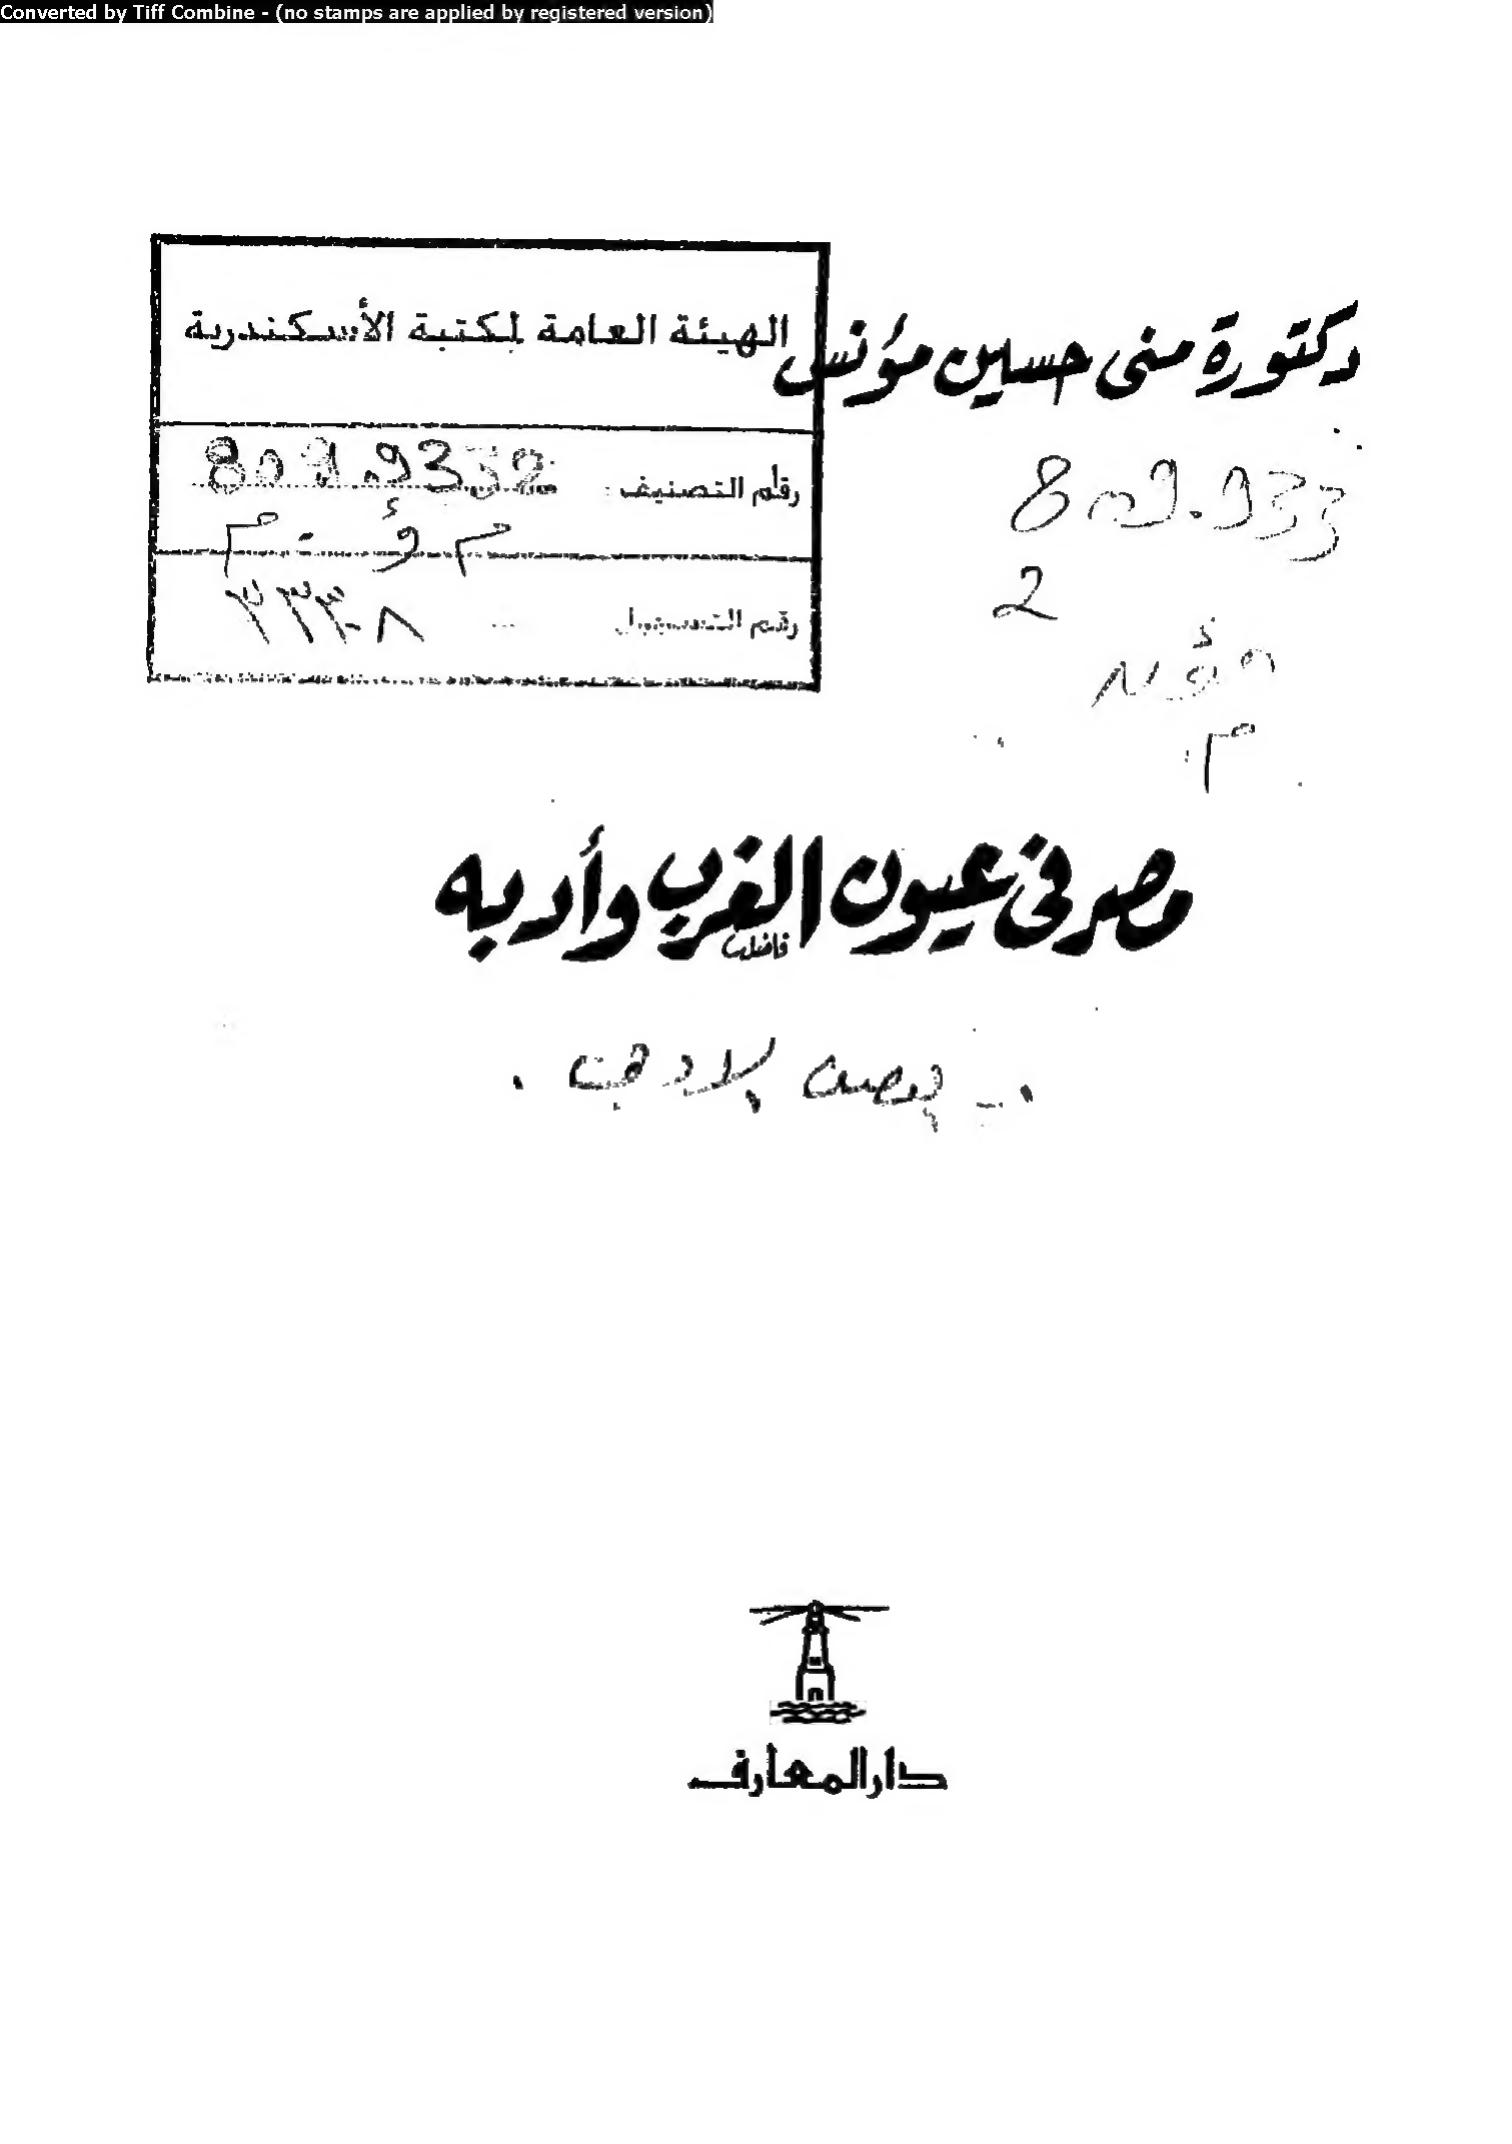 Converted by Tiff Combine - (no stamps are applied by registered version)
دكتورة منى حسين مؤنس
الهيئة العامة لمكتبة الأسكندرية
رقم التصنيف: 809.9332
م ؤ . م
رقم التسجيل ٣٣٣٠٨
809.933
2
مؤن
م
مصر فى عيون الغرب وأدبه
دار المعارف